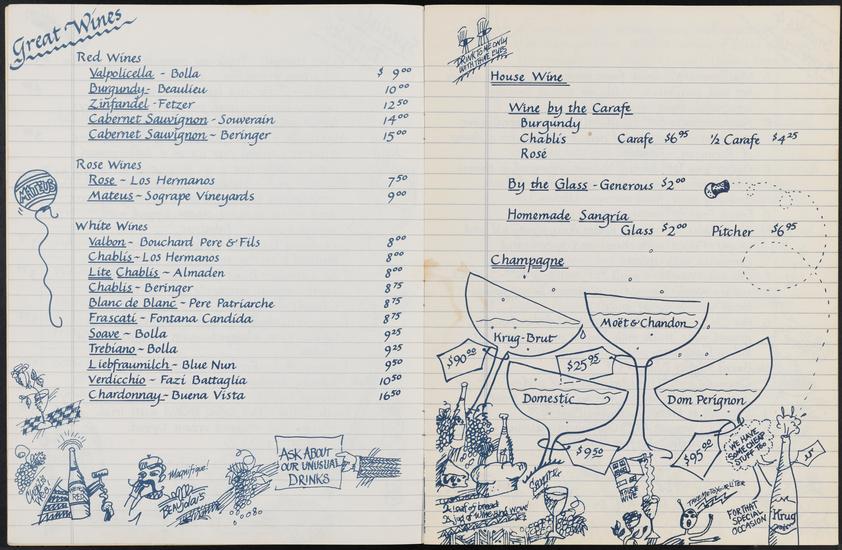 Great Wines
Red Wines
Valpolicella - Bolla $ 9⁰⁰
Burgundy - Beaulieu 10⁰⁰
Zinfandel - Fetzer 12⁵⁰
Cabernet Sauvignon - Souverain 14⁰⁰
Cabernet Sauvignon ~ Beringer 15⁰⁰
Rose Wines
Rose ~ Los Hermanos 7⁵⁰
Mateus ~ Sogrape Vineyards 9⁰⁰
MATEUS
White Wines
Valbon - Bouchard Pere & Fils 8⁰⁰
Chablis ~ Los Hermanos 8⁰⁰
Lite Chablis ~ Almaden 8⁰⁰
Chablis - Beringer 8⁷⁵
Blanc de Blanc - Pere Patriarche 8⁷⁵
Frascati - Fontana Candida 8⁷⁵
Soave ~ Bolla 9²⁵
Trebiano ~ Bolla 9²⁵
Liebfraumilch - Blue Nun 9⁵⁰
Verdicchio ~ Fazi Battaglia 10⁵⁰
Chardonnay - Buena Vista 16⁵⁰
RED
Magnifique!
BEAUJOLAIS
ASK ABOUT
OUR UNUSUAL
DRINKS
DRINK TO ME ONLY
WITH THINE EYES
House Wine
Wine by the Carafe
Burgundy
Chablis Carafe $6⁹⁵ ½ Carafe $4²⁵
Rosé
By the Glass - Generous $2⁰⁰
Homemade Sangria
Glass $2⁰⁰ Pitcher $6⁹⁵
Champagne
Krug-Brut
$90⁰⁰
Moët & Chandon
$25⁹⁵
Domestic
$9⁵⁰
Dom Perignon
$95⁰⁰
WE HAVE
SOME CHEAP
STUFF TOO
HOUSE
WINE
A loaf of bread
A jug of wine and wow!
TAKE ME TO YOUR LITER
FOR THAT
SPECIAL
OCCASION
Krug